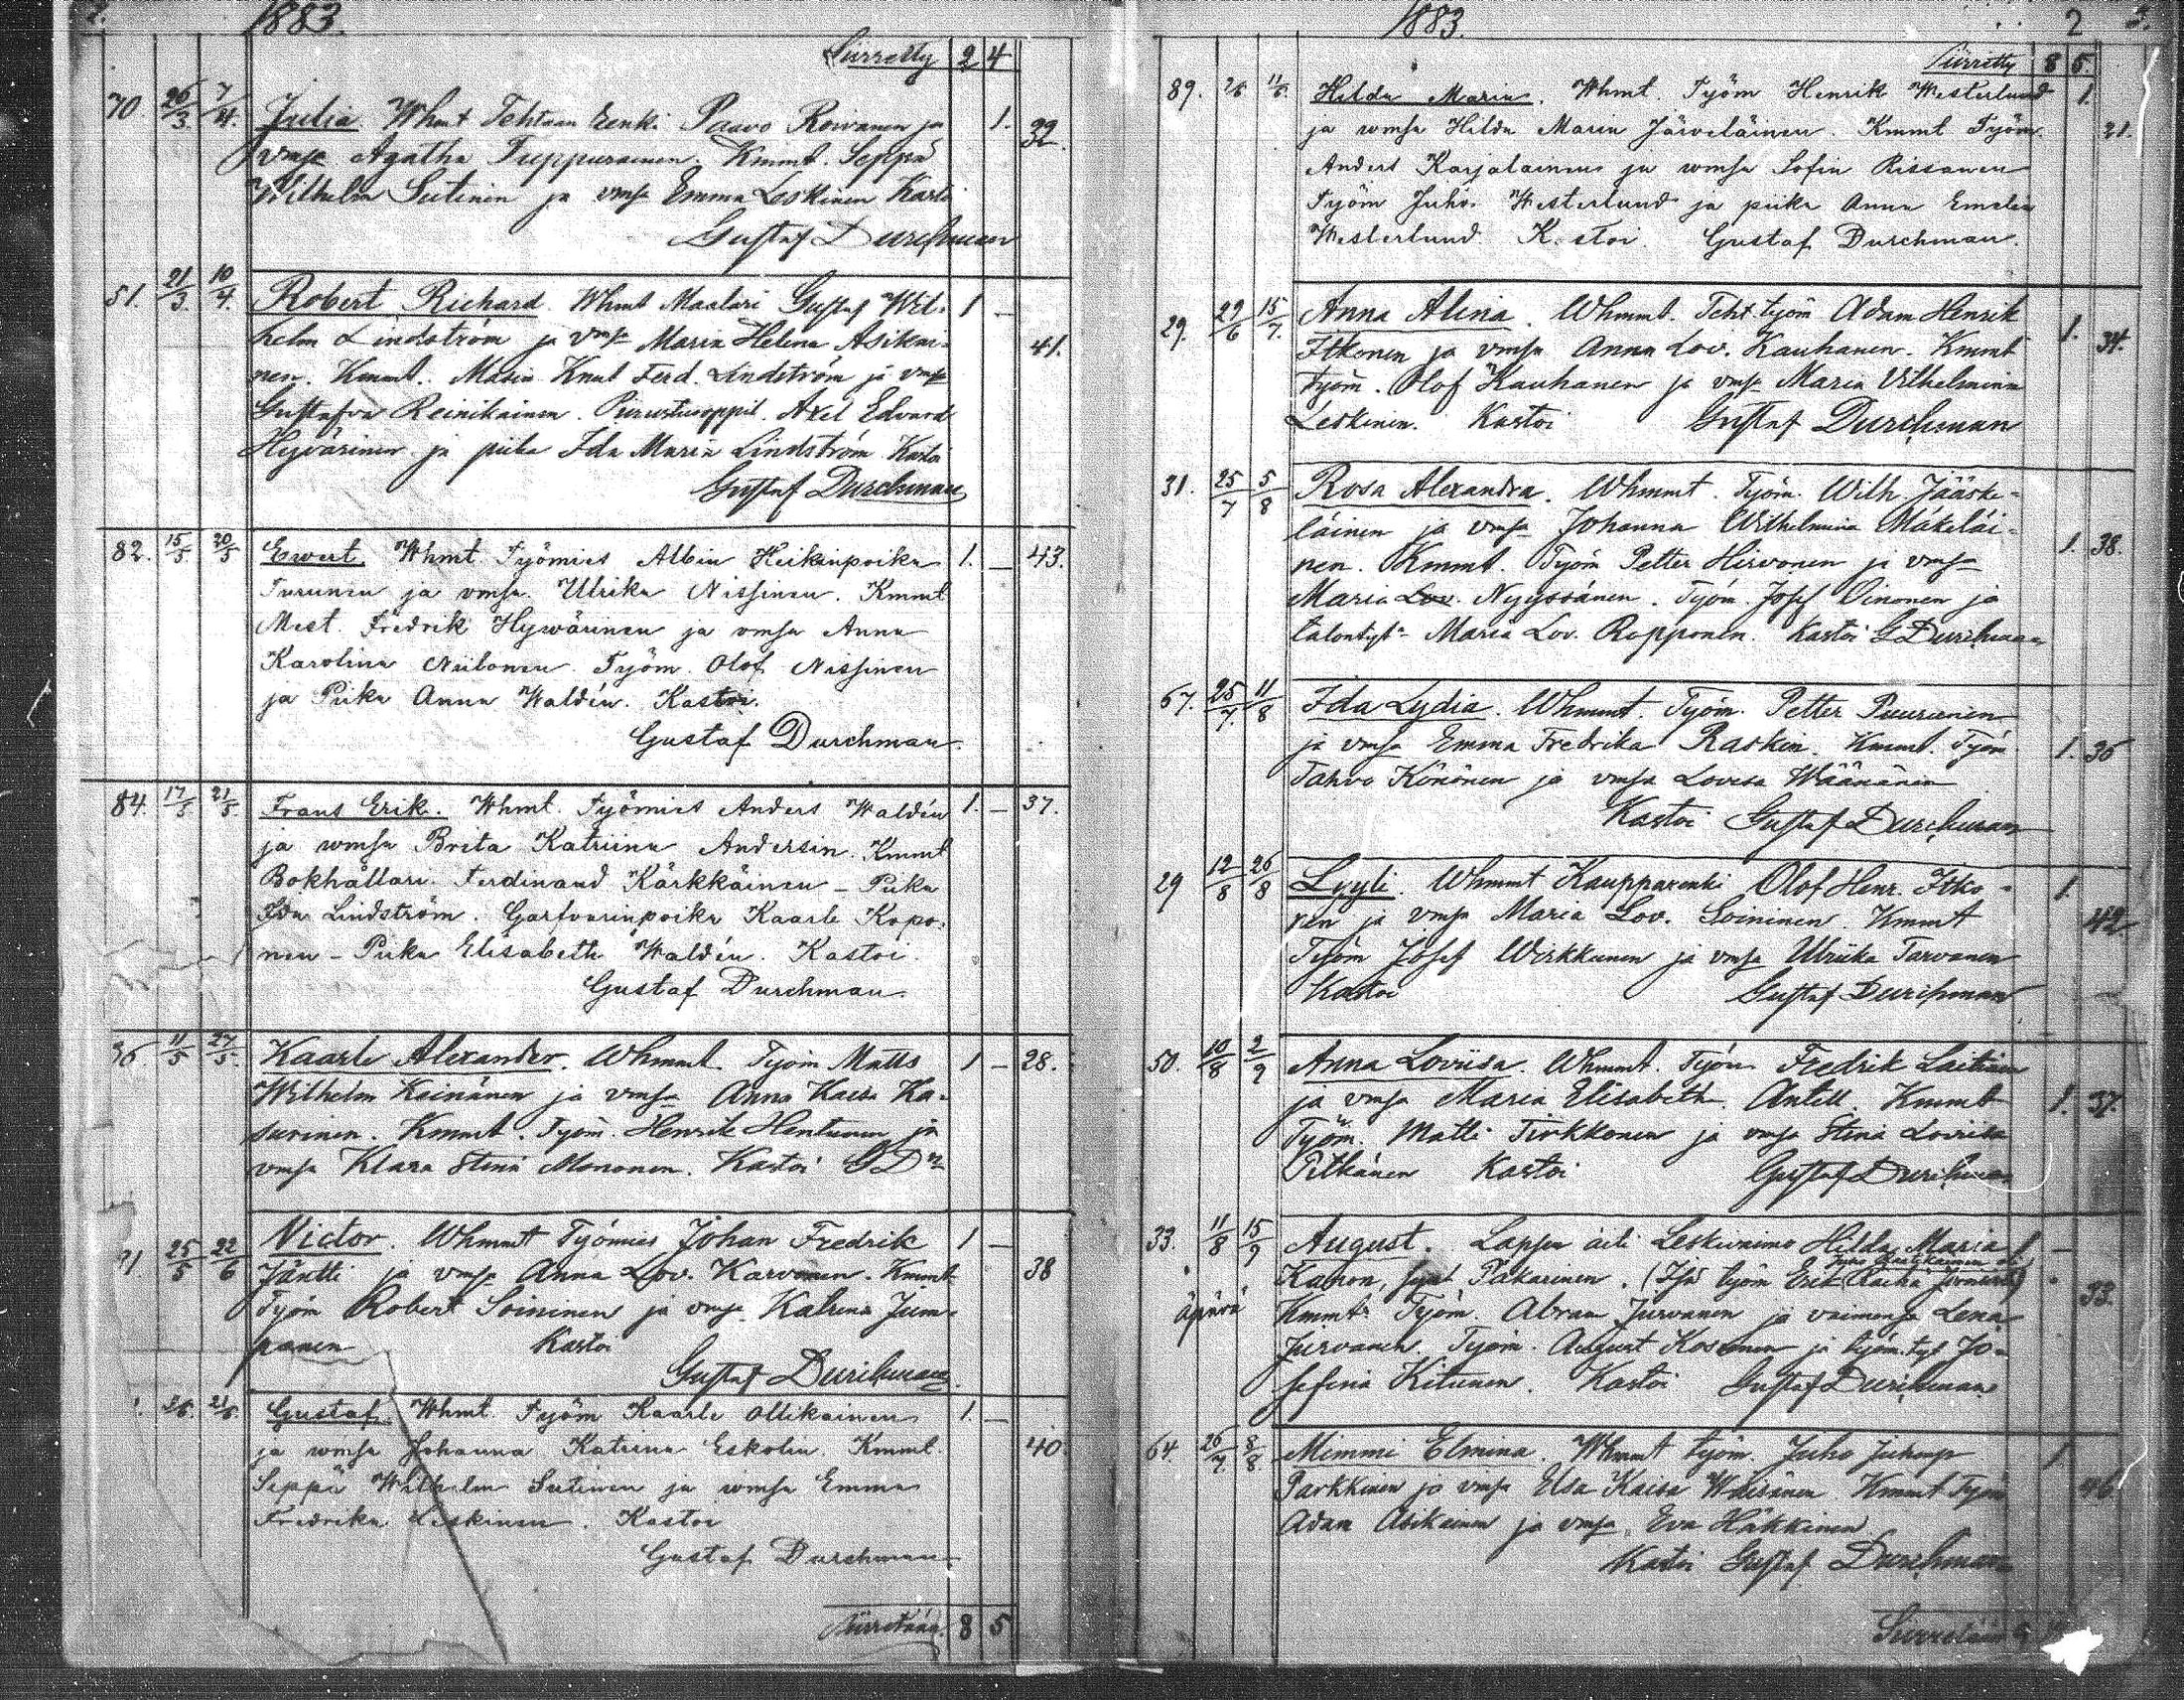 1883.
Siirretty 2 4
70. 26/3. 7/4. Julia. Whmt Tehtaan Renki Paavo Roivanen ja 1. 32.
vmsa Agatha Tuppurainen. Kmmt. Seppä
Wilhelm Sutinen ja vmsa Emma Leskinen Kastoi
Gustaf Durchman
51. 21/3. 10/4. Robert Richard. Whmt Maalari Gustaf Wil- 1 –
helm Lindström ja vmsa Maria Helena Asikai- 41.
nen. Kmmt. Masin. Knut Ferd. Lindström ja vmsa
Gustafva Reinikainen. Piirustusoppil. Axel Edvard
Hyvärinen ja piika Ida Maria Lindström Kastoi
Gustaf Durchman
82. 15/5. 20/5 Ewert. Whmt. Työmies Albin Heikinpoika 1. – 43.
Turunen ja vmsa. Ulrika Nissinen. Kmmt
Mest. Fredrik Hywärinen ja vmsa Anna
Karolina Niilonen. Työm. Olof Nissinen
ja Piika Anna Waldén. Kastoi.
Gustaf Durchman.
84. 17/5 21/5. Frans Erik. Whmt. Työmies Anders Waldén 1. – 37.
ja wmsa Brita Katriina Andersin. Kmmt
Bokhållari. Ferdinand Kärkkäinen – Piika
Ida Lindström. Garfvarinpoika Kaarle Kopo-
nen – Piika Elisabeth Waldén. Kastoi.
Gustaf Durchman.
36. 11/5 27/5. Kaarle Alexander. Whmmt. Työm Matts 1 – 28.
Wilhelm Keinänen ja vmsa Anna Kaisa Ka-
surinen. Kmmt. Työm. Henrik Hentunen ja
vmsa Klara Stina Mononen. Kastoi G Dn
25/5 22/6 Victor. Whmmt Työmies Johan Fredrik 1 –
Jäntti ja vmsa Anna Lov. Karvonen. Kmmt 38
Työm Robert Soininen ja vmsa Katrina Jum-
panen Kastoi
Gustaf Durchman.
Gustaf. Whmt. Työm Kaarle Ollikainen 1. –
ja wmsa Johanna Katrina Eskolin. Kmmt. 40.
Seppä Wilhelm Sutinen ja wmsa Emma
Fredrika Leskinen. Kastoi
Gustaf Durchman
Siirretään. 8 5
1883. 2 3.
Siirretty 8 5.
89. 26 11/6. Hilda Maria. Whmt. Työm Henrik Westerlund 1.
ja wmsa Hilda Maria Järveläinen. Kmmt Työm. 21.
Anders Karjalainen ja wmsa Sofia Rissanen
Työm Juho Westerlund ja piika Anna Emelia
Westerlund K. stoi. Gustaf Durchman.
29. 29/6 15/7. Anna Alina. Whmmt. Teht. työm Adam Henrik 1. 34.
Itkonen ja vmsa Anna Lov. Kauhanen. Kmmt
Työm. Olof Kauhanen ja vmsa Maria Vilhelmina
Leskinen. Kastoi Gustaf Durchman
31. 25/7 5/8 Rosa Alexandra. Whmmt. Työm. Wilh. Jääske-
läinen ja vmsa Johanna Wilhelmina Mäkeläi- 1. 38.
nen. Kmmt. Työm Petter Hirvonen ja vmsa
Maria Lov. Nyyssönen. Työm. Josef Oinonen ja
talontyt. Maria Lov. Ropponen. Kastoi G Durchman
67. 25/7. 11/8 Ida Lydia. Whmmt. Työm. Petter Puurunen
ja vmsa Emma Fredrika Raskin. Kmmt. Työm 1. 36
Tahvo Könönen ja vmsa Lovisa Wäänänen
Kastoi Gustaf Durchman
29 12/8 26/8 Lyyli. Whmmt Kaupparenki Olof Henr. Itko- 1.
nen ja vmsa Maria Lov. Soininen. Kmmt 42
Työm Josef Wirkkunen ja vmsa Ulriika Tarvanen
Kastoi Gustaf Durchman
50. 10/8 2/9 Anna Loviisa. Whmmt. Työm Fredrik Laitinen
ja vmsa Maria Elisabeth Antell. Kmmt 1. 37.
Työm. Matti Tirkkonen ja vmsa Stina Lovisa
Pitkänen Kastoi Gustaf Durchman
33. 11/8 15/9 August. Lapsen äiti Leskivaimo Hilda Maria 1 –
Karron, synt Pakarinen. (Isä työm Erik 33.
Äpärä Kmmt. Työm. Abram Jurvanen ja vaimonsa Lena
Jurvanen. Työm. August Kosonen ja työm. tyt Jo-
sefina Kitunen. Kastoi Gustaf Durchman
64. 26/7. 8/8. Mimmi Elmina. Whmmt työm. Juho Juhonp 1.
Parkkinen ja vmsa Elsa Kaisa Wäisänen Kmmt Työm 46
Adam Asikainen ja vmsa Eva Häkkinen
Kastoi Gustaf Durchman
Siirretään